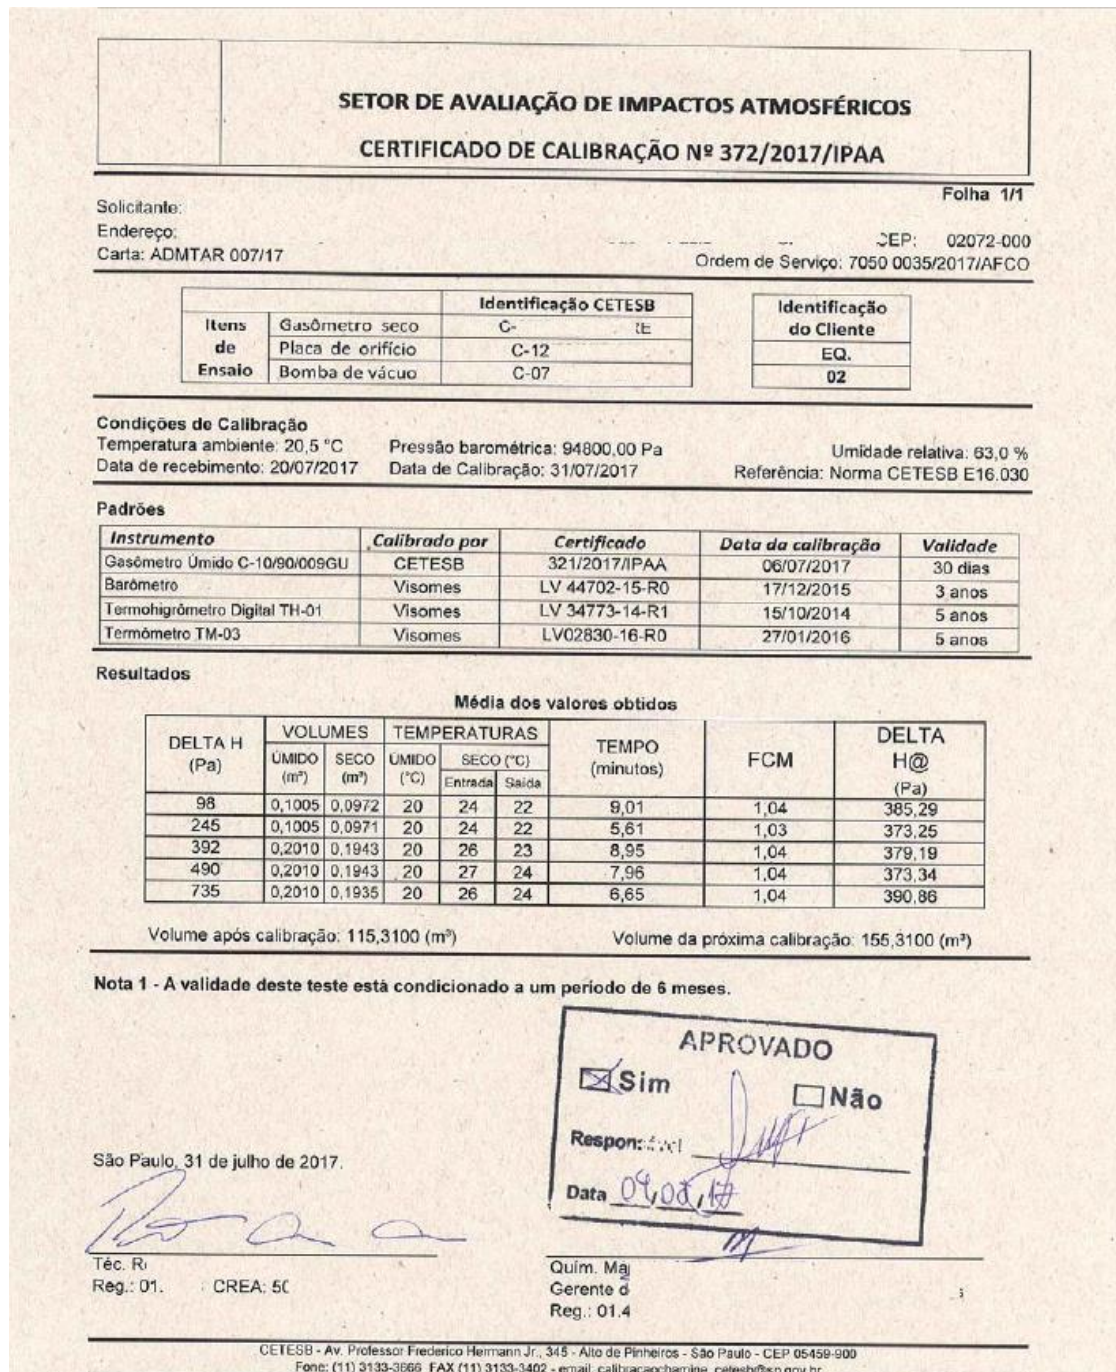 SETOR DE AVALIAÇÃO DE IMPACTOS ATMOSFÉRICOS
CERTIFICADO DE CALIBRAÇÃO Nº 372/2017/IPAA
Folha 1/1
Solicitante:
Endereço: CEP: 02072-000
Carta: ADMTAR 007/17 Ordem de Serviço: 7050 0035/2017/AFCO
Identificação CETESB
Identificação do Cliente
Itens de Ensaio
Gasômetro seco C-
Placa de orifício C-12 EQ.
Bomba de vácuo C-07 02
Condições de Calibração
Temperatura ambiente: 20,5 °C Pressão barométrica: 94800,00 Pa Umidade relativa: 63,0 %
Data de recebimento: 20/07/2017 Data de Calibração: 31/07/2017 Referência: Norma CETESB E16.030
Padrões
Instrumento Calibrado por Certificado Data da calibração Validade
Gasômetro Úmido C-10/90/009GU CETESB 321/2017/IPAA 06/07/2017 30 dias
Barômetro Visomes LV 44702-15-R0 17/12/2015 3 anos
Termohigrômetro Digital TH-01 Visomes LV 34773-14-R1 15/10/2014 5 anos
Termômetro TM-03 Visomes LV02830-16-R0 27/01/2016 5 anos
Resultados
Média dos valores obtidos
DELTA H (Pa) VOLUMES TEMPERATURAS TEMPO (minutos) FCM DELTA H@ (Pa)
ÚMIDO (m³) SECO (m³) ÚMIDO (°C) SECO (°C)
Entrada Saída
98 0,1005 0,0972 20 24 22 9,01 1,04 385,29
245 0,1005 0,0971 20 24 22 5,61 1,03 373,25
392 0,2010 0,1943 20 26 23 8,95 1,04 379,19
490 0,2010 0,1943 20 27 24 7,96 1,04 373,34
735 0,2010 0,1935 20 26 24 6,65 1,04 390,86
Volume após calibração: 115,3100 (m³) Volume da próxima calibração: 155,3100 (m³)
Nota 1 - A validade deste teste está condicionado a um período de 6 meses.
APROVADO
Sim Não
Data
São Paulo, 31 de julho de 2017.
Téc.
Reg.: 01. CREA: 50
Quím.
Gerente d
Reg.: 01.4
CETESB - Av. Professor Frederico Hermann Jr., 345 - Alto de Pinheiros - São Paulo - CEP 05459-900
Fone: (11) 3133-3666 FAX (11) 3133-3402 - email: